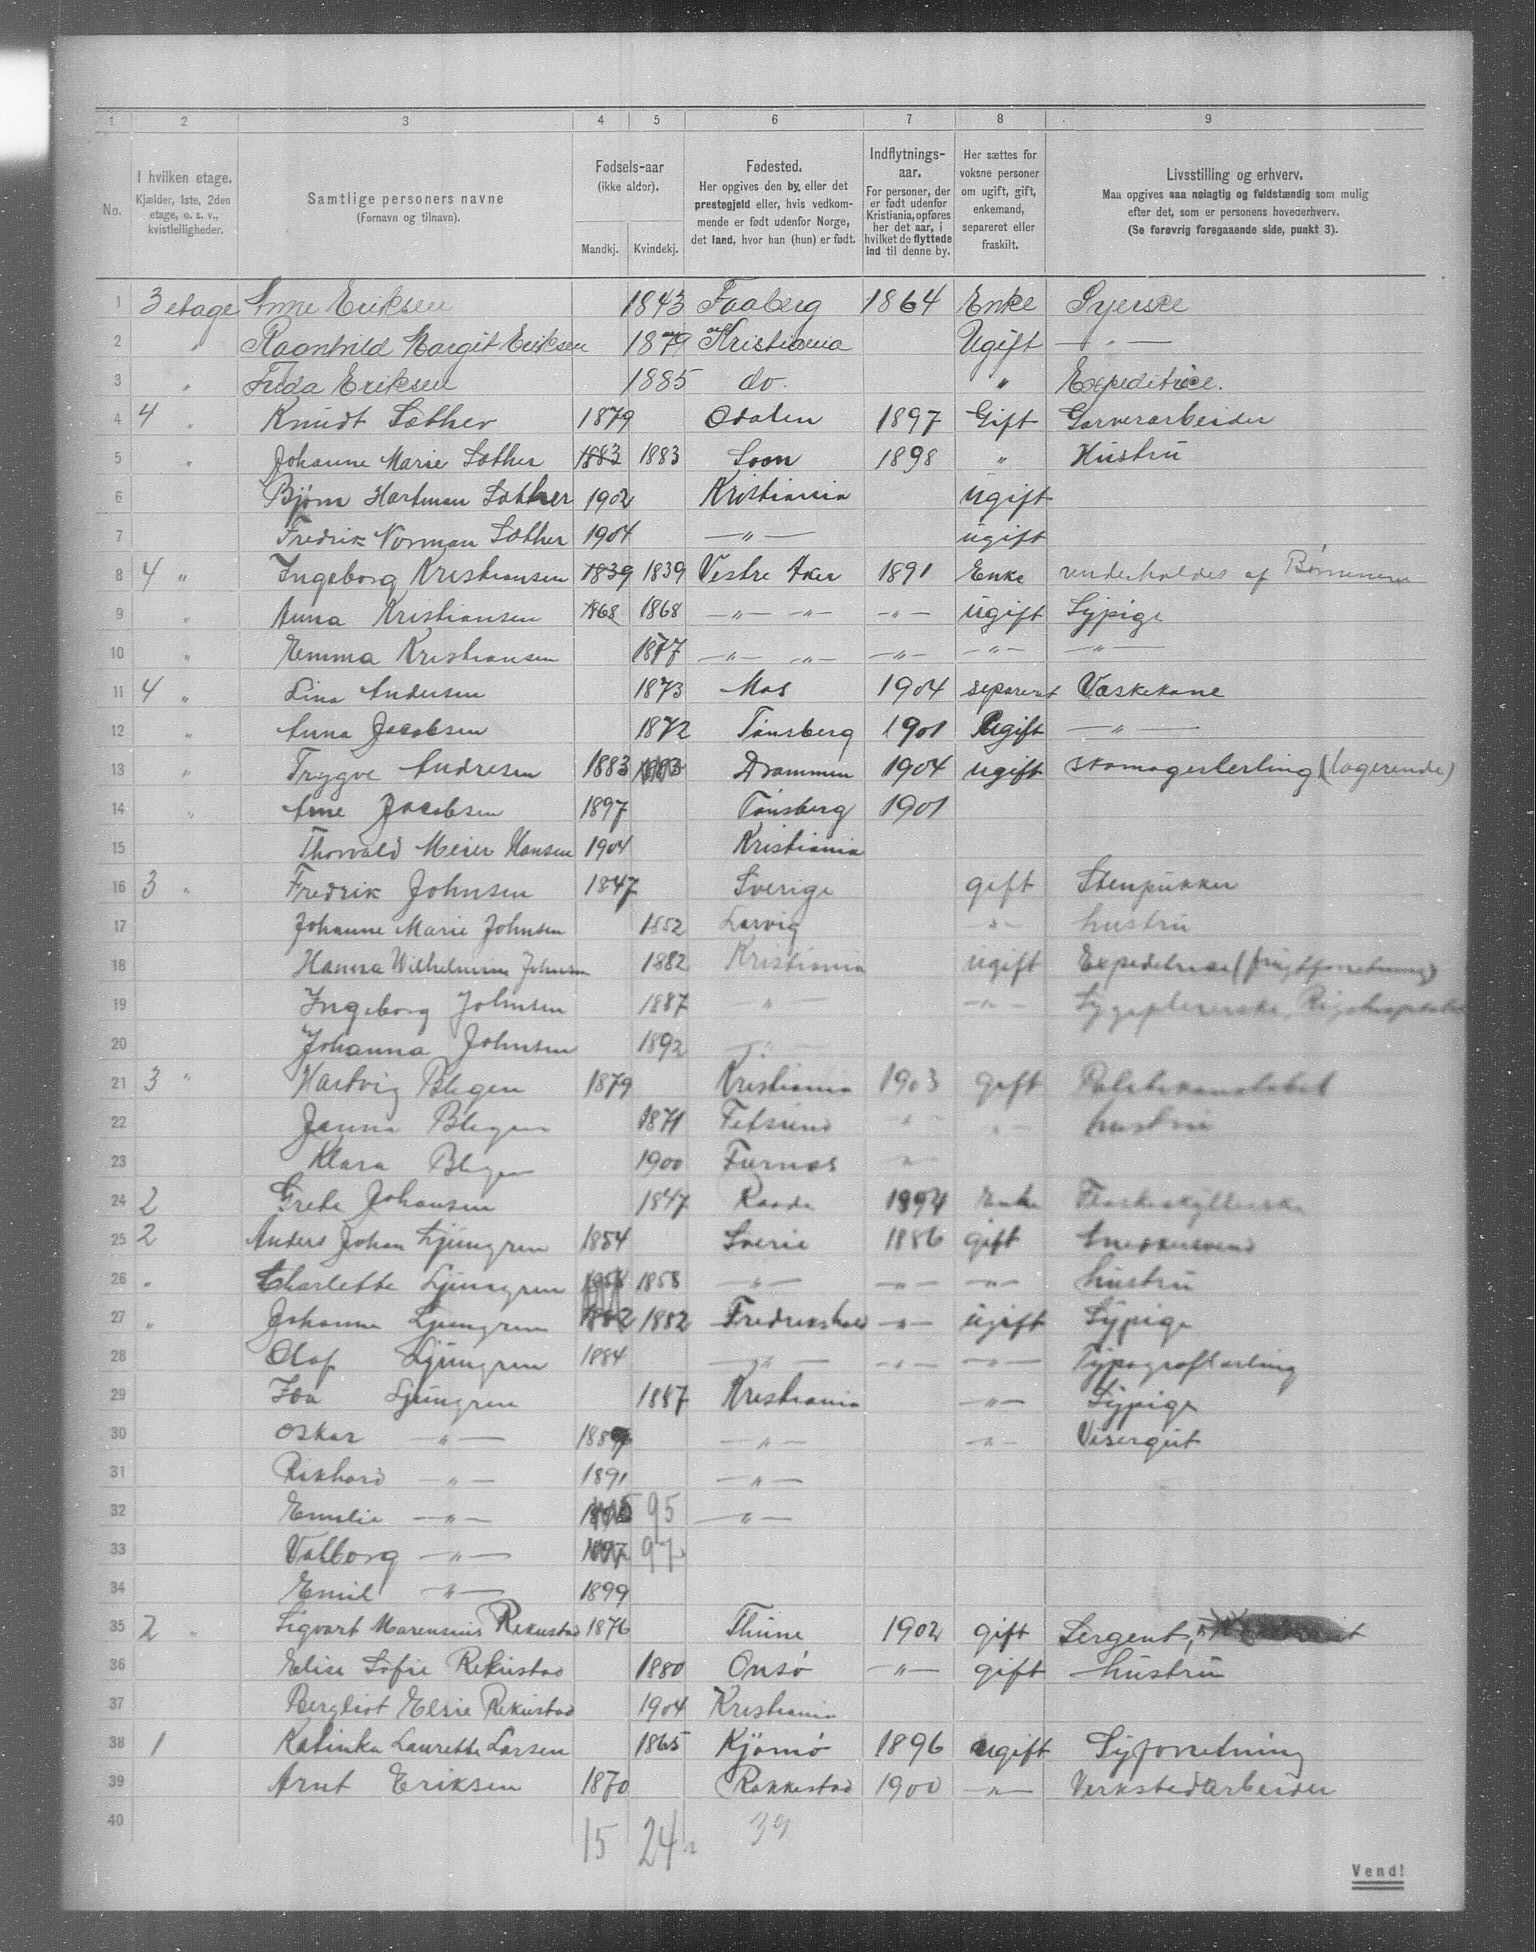 1 2 3 4 5 6 7 8 9
No.
I hvilken etage.
Kjælder, 1ste, 2den
etage, o. s. v.,
kvistleiligheder.
Samtlige personers navne
(Fornavn og tilnavn).
Fødsels-aar
(ikke alder).
Mandkj. Kvindekj.
Fødested.
Her opgives den by, eller det
prestegjeld eller, hvis vedkom-
mende er født udenfor Norge,
det land, hvor han (hun) er født.
Indflytnings-
aar.
For personer, der
er født udenfor
Kristiania, opføres
her det aar, i
hvilket de flyttede
ind til denne by.
Her sættes for
voksne personer
om ugift, gift,
enkemand,
separeret eller
fraskilt.
Livsstilling og erhverv.
Maa opgives saa nøiagtig og fuldstændig som mulig
efter det, som er personens hovederhverv.
(Se forøvrig foregaaende side, punkt 3).
1 3 etage Anne Eriksen 1843 Faaberg 1864 Enke Syerske
2 " Ragnhild Margit Eriksen 1879 Kristiania Ugift — " —
3 " Frida Eriksen 1885 do. " Expeditrice.
4 4 " Knudt Sæther 1879 Odalen 1897 Gift Garverarbeider
5 " Johanne Marie Sæther 1883 1883 Soon 1898 " Hustru
6 Bjørn Hartman Sæther 1902 Kristiania ugift
7 Fredrik Norman Sæther 1904 — " — ugift
8 4 " Ingeborg Kristiansen 1839 1839 Vestre Aker 1891 Enke underholdes af Børnene
9 " Anna Kristiansen 1868 1868 — " — " — — " — ugift Sypige
10 " Emma Kristiansen 1877 — " — " — — " — — " — — " —
11 4 " Lina Andersen 1873 Mos 1904 separert Vaskekone
12 " Anna Jacobsen 1872 Tønsberg 1901 ugift — " —
13 " Trygve Andresen 1883 1883 Drammen 1904 ugift skomagerlerling (lagerende)
14 " Arne Jacobsen 1897 Tønsberg 1901
15 Thorvald Meier Hansen 1904 Kristiania
16 3 " Fredrik Johnsen 1847 Sverige gift Stenpukker
17 Johanne Marie Johnsen 1852 Larvig " hustru
18 Hanna Wilhelmine Johnsen 1882 Kristiania ugift Expeditrise (frugtforretning)
19 Ingeborg Johnsen 1887 " — " — Sygepleierske, Rigshospitalet
20 Johanna Johnsen 1892 — " —
21 3 " Hartvig Blegen 1879 Kristiania 1903 gift Politikonstabel
22 Janna Blegen 1871 Fetsund " " hustru
23 Klara Blegen 1900 Furnes "
24 2 Grete Johansen 1847 Raade 1894 Enke Flaskeskyllerske
25 2 Anders Johan Ljungren 1854 Sverie 1886 gift Snekkersvend
26 " Charlette Ljungren 1858 — " — — " — — " — hustru
27 " Johanne Ljungren 1882 1882 Fredrikshald — " — ugift Sypige
28 Olaf Ljungren 1884 — " — — " — — " — Typograflerling
29 Ida Ljungren 1887 Kristiania — " — Sypige
30 Oskar " — 1889 — " — — " — Visergut
31 Rikhard — " — 1891 — " —
32 Emilie — " — 1895 95 — " —
33 Valborg — " — 1897 97
34 Emil — " — 1899
35 2 " Sigvart Marensius Rekustad 1876 Thune 1902 gift Sergent,
36 Elise Sofie Rekustad 1880 Onsø — " — gift hustru
37 Bergliot Elsie Rekustad 1904 Kristiania
38 1 Katinka Laurette Larsen 1865 Kjømø 1896 ugift Syforretning
39 Arnt Eriksen 1870 Rakkestad 1900 — " — Verkstedarbeider
40
15 24 39
Vend!